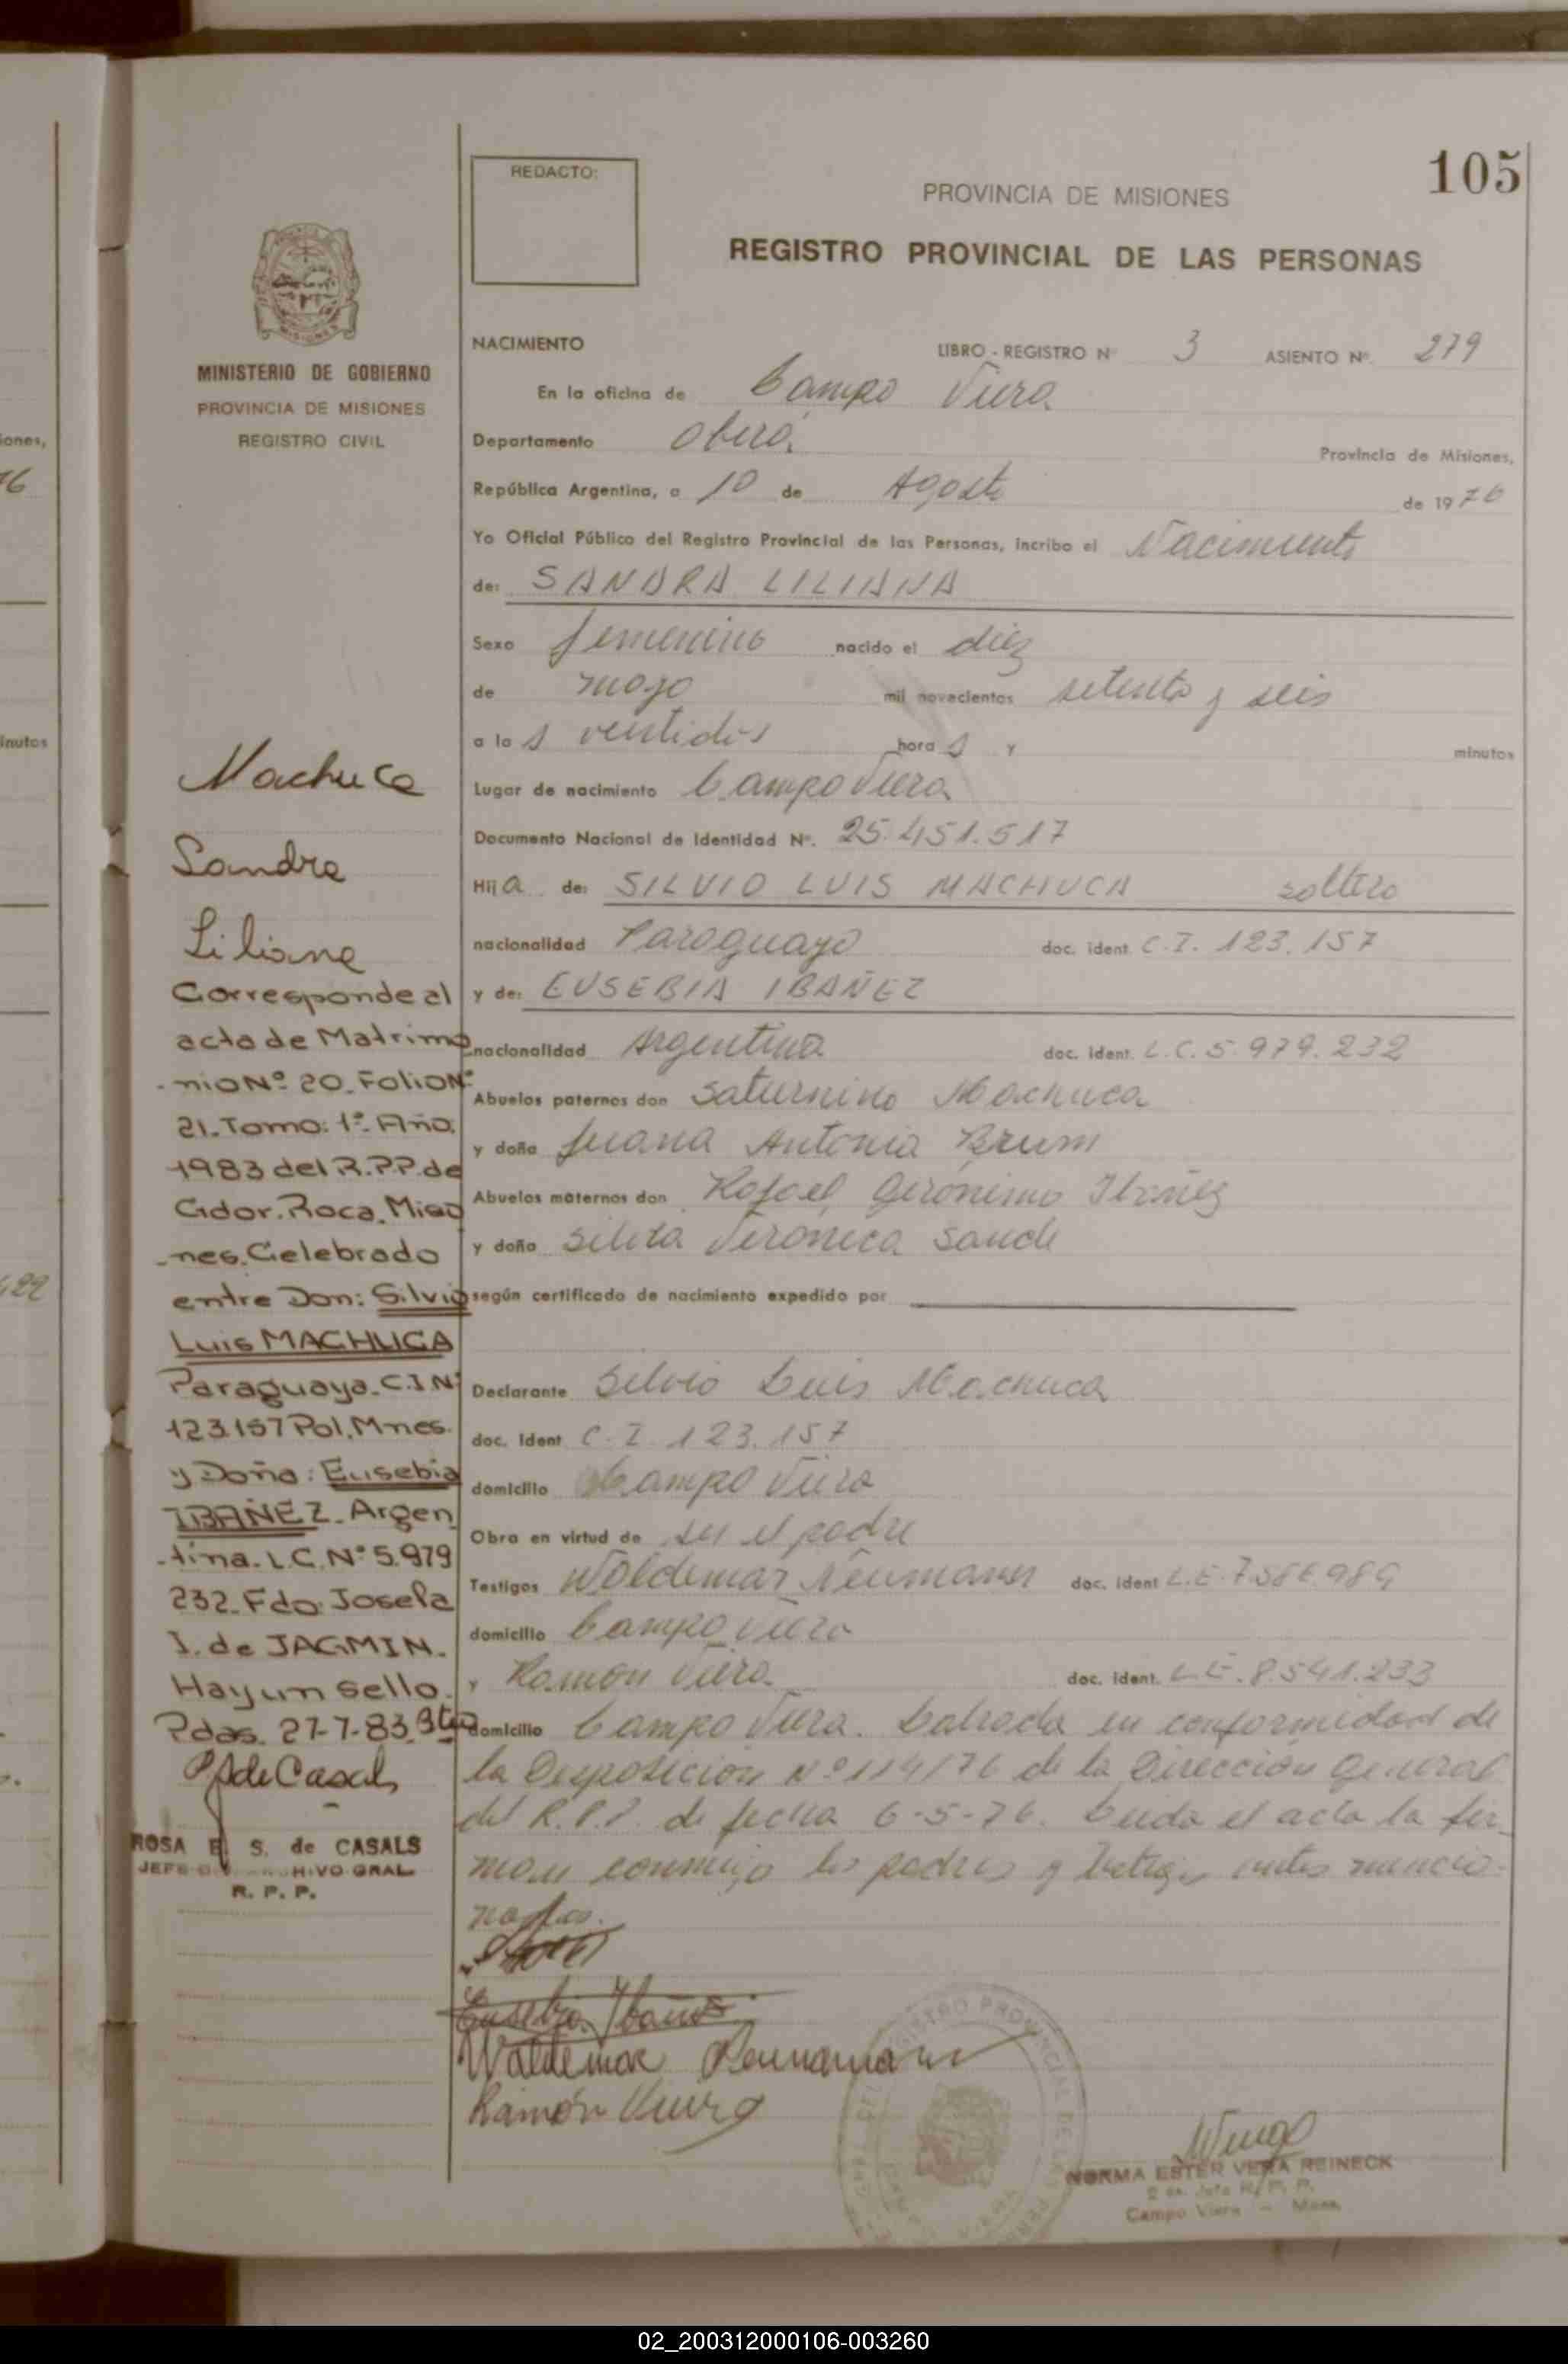 105
REDACTO:
PROVINCIA DE MISIONES
REGISTRO PROVINCIAL DE LAS PERSONAS
MINISTERIO DE GOBIERNO
PROVINCIA DE MISIONES
REGISTRO CIVIL
NACIMIENTO LIBRO - REGISTRO Nº 3 ASIENTO Nº. 279
En la oficina de Campo Viera
Departamento Oberá Provincia de Misiones,
República Argentina, a 10 de Agosto de 1976
Yo Oficial Público del Registro Provincial de las Personas, incribo el Nacimiento
de: SANDRA LILIANA
Sexo femenino nacido el diez
de mayo mil novecientos setenta y seis
a las ventidós horas y minutos
Lugar de nacimiento Campo Viera
Documento Nacional de Identidad Nº. 25.451.517
Hija de: SILVIO LUIS MACHUCA soltero
nacionalidad Paraguayo doc. ident. C.I. 123.157
y de: EUSEBIA IBAÑEZ
nacionalidad Argentina doc. ident. L.C. 5.979.232
Abuelos paternos don Saturnino Machuca
y doña Juana Antonia Brum
Abuelos maternos don Rafael Gerónimo Ibañez
y doña Verónica
según certificado de nacimiento expedido por
Declarante Silvio Luis Machuca
doc. Ident C.I. 123.157
domicilio Campo Viera
Obra en virtud de ser el padre
Testigos Woldemar Neumann doc. ident L.E.
domicilio Campo Viera
y Ramón Viera doc. ident. L.E. 8.541.233
domicilio Campo Viera. Labrada en conformidad de
la Disposición Nº 114/76 de la Dirección General
del R.P.P. de fecha 6-5-76. Leida el acta la fir-
man conmigo los padres y testigos antes mencio-
nados.
Eusebia Ibañez
Waldemar Neumann
Ramón Viera
NORMA ESTER VERA REINECK
Campo Viera - Mnes.
Machuca
Sandra
Liliana
Corresponde al
acta de Matrimo
-nio Nº 20. Folio Nº
21. Tomo: 1º. Año.
1983 del R.P.P. de
Gdor. Roca. Misio
-nes. Celebrado
entre Don: Silvio
Luis MACHUCA
Paraguaya. C.I Nº
123.157 Pol. Mnes.
y Doña: Eusebia
IBAÑEZ. Argen
-tina. L.C. Nº 5.979
232. Fdo. Josefa
J. de JAGMIN.
Hay un sello.
Pdas. 27-7-83.
de Casals
ROSA E. S. de CASALS
JEFE ARCHIVO GRAL
R. P. P.
iones,
76
inutos
02_200312000106-003260